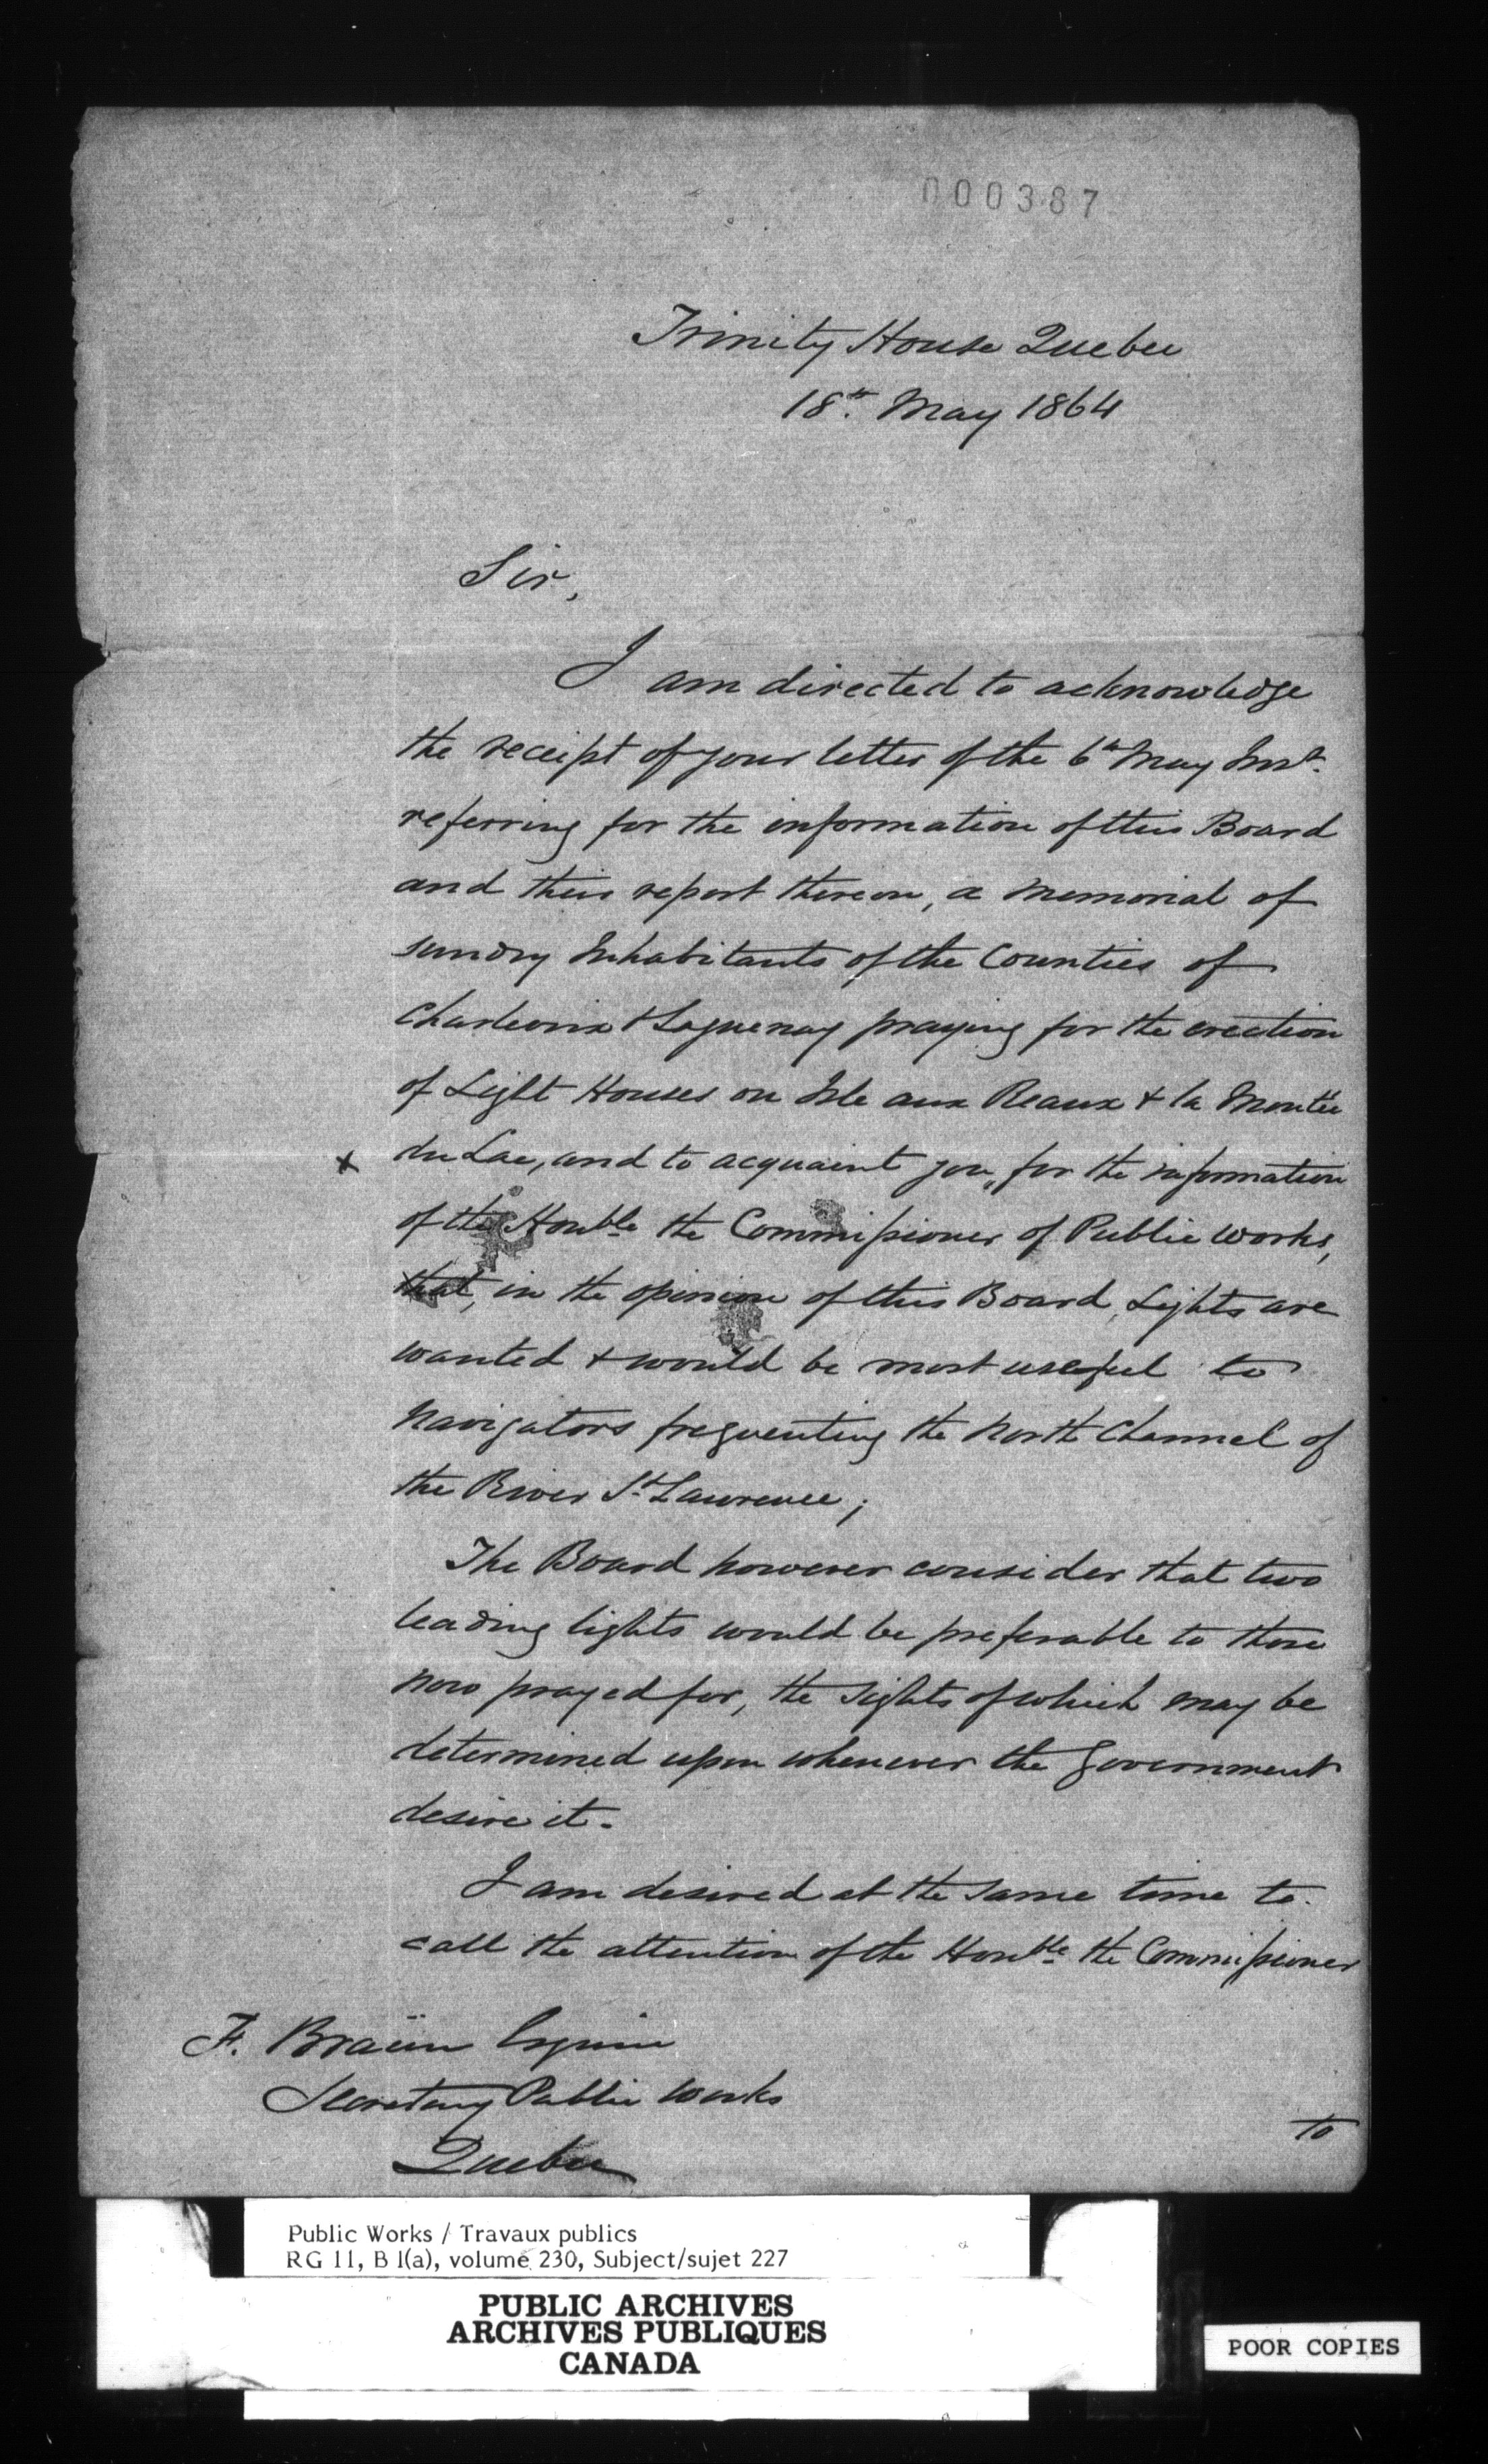 000387
Trinity House Quebec
18th. May 1864
Sir,
I am directed to acknowledge
the receipt of your letter of the 6th May Inst.
referring for the information of this Board
and their report thereon, a Memorial of
sundry Inhabitants of the Counties of
Charlevoix & Saguenay praying for the erection
of Light Houses on Isle aux Reaux & la Montée
x du Lac, and to acquaint you, for the information
of the Honble the Commissioner of Public Works,
that, in the opinion of this Board, Lights are
wanted & would be most useful to
Navigators frequenting the North Channel of
the River St. Lawrence;
The Board however consider that two
leading lights would be preferable to those
now prayed for, the sights of which may be
determined upon whenever the Government
desire it.
I am desired at the same time to
call the attention of the Honble. the Commissioner
F. Braün Esquire
Secretary Public Works
Quebec
to
Public Works / Travaux publics
RG 11, B 1(a), volume 230, Subject/sujet 227
PUBLIC ARCHIVES
ARCHIVES PUBLIQUES
CANADA
POOR COPIES